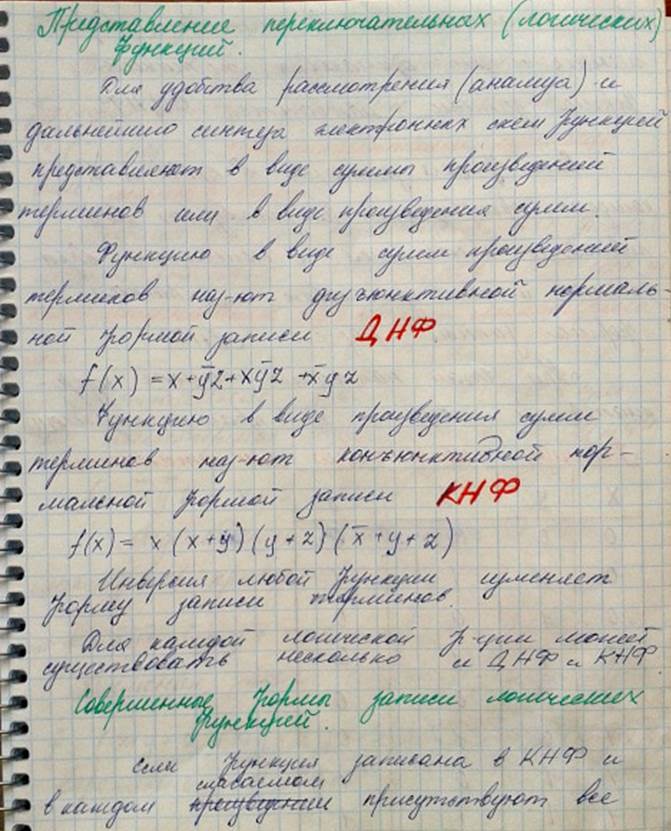 Представление переключательных (логических)
функций.
Для удобства рассмотрения (анализа) и
дальнейшего синтеза электронных схем функцией
представляют в виде суммы произведений
терминов или в виде произведения сумм.
Функцию в виде сумм произведений
терминов наз-ют дизъюнктивной нормаль-
ной формой записи ДНФ
f(x) = x + y̅z + xy̅z + x̅yz
Функцию в виде произведения сумм
терминов наз-ют конъюнктивной нор-
мальной формой записи КНФ
f(x) = x (x + y̅) (y + z) (x̅ + y + z)
Инверсия любой функции изменяет
форму записи терминов.
Для каждой логической ф-ции может
существовать несколько и ДНФ и КНФ
Совершенные формы записи логических
функций.
Если функция записана в КНФ и
слагаемом
в каждом произведении присутствуют все